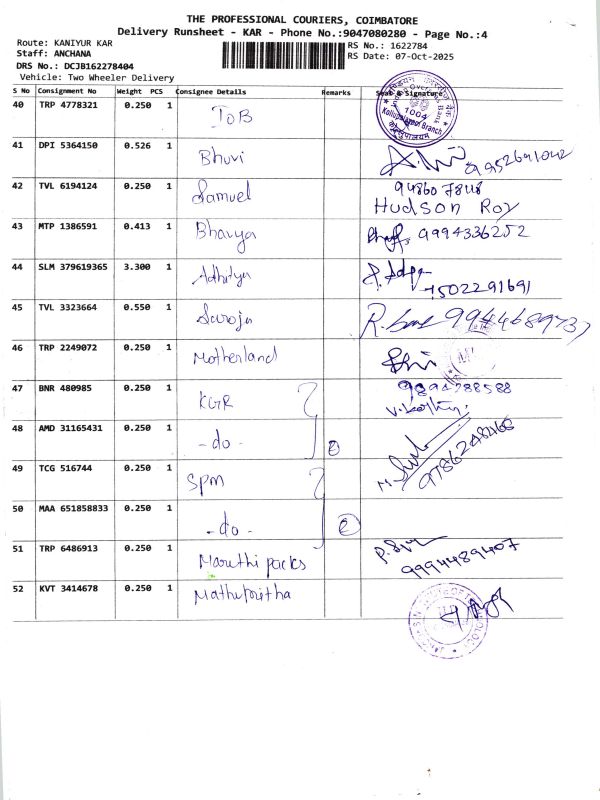 THE PROFESSIONAL COURIERS, COIMBATORE
Delivery Runsheet - KAR - Phone No.:9047080280 - Page No.:4
Route: KANIYUR KAR
Staff: ANCHANA
DRS No.: DCJB162278404
Vehicle: Two Wheeler Delivery
RS No.: 1622784
RS Date: 07-Oct-2025
S No Consignment No Weight PCS Consignee Details Remarks Seal & Signature
40 TRP 4778321 0.250 1 IOB
1004
Branch
41 DPI 5364150 0.526 1 Bhuvi 9952691042
42 TVL 6194124 0.250 1 Samuel
Hudson Roy
43 MTP 1386591 0.413 1 Bhavya 9994336252
44 SLM 379619365 3.300 1 Adhitya
7502291691
45 TVL 3323664 0.550 1 Saroja 9944689737
46 TRP 2249072 0.250 1 Motherland
47 BNR 480985 0.250 1 KGR 9894288588
48 AMD 31165431 0.250 1 -do- 2
9786248468
49 TCG 516744 0.250 1 SPM
50 MAA 651858833 0.250 1 -do- 2
51 TRP 6486913 0.250 1 Maruthi packs
9994489407
52 KVT 3414678 0.250 1